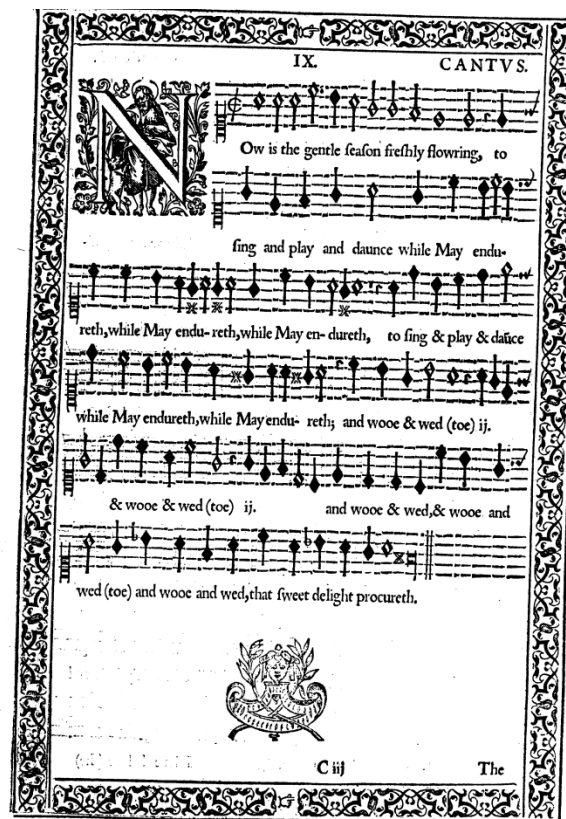 IX. CANTVS.
NOw is the gentle ſeaſon freſhly flowring, to
ſing and play and daunce while May endu-
reth, while May endu- reth, while May en- dureth, to ſing & play & daūce
while May endureth, while May endu- reth; and wooe & wed (toe) ij.
& wooe & wed (toe) ij. and wooe & wed, & wooe and
wed (toe) and wooe and wed, that ſweet delight procureth.
C iij The